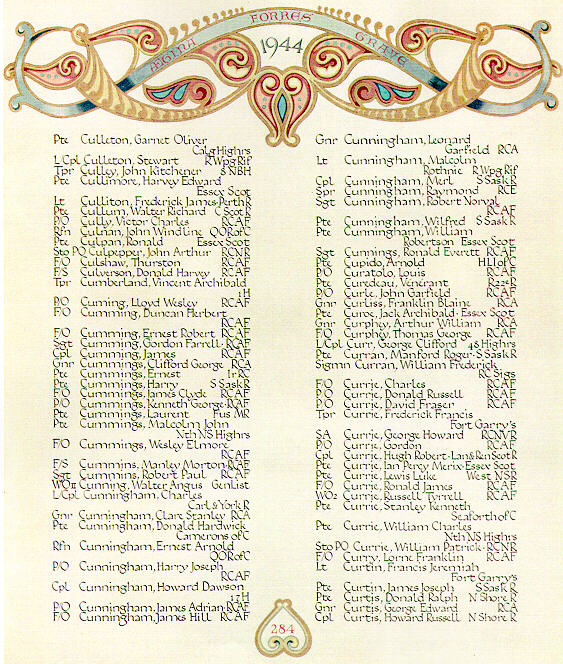 FORRES
ÆGINA
GRAVE
1944
Pte Culleton, Garnet Oliver
Calg Highrs
L/Cpl Culleton, Stewart R Wpg Rif
Tpr Culley, John Kitchener 8 NBH
Pte Cullimore, Harvey Edward
Essex Scot
Lt Culliton, Frederick James · Perth R
Pte Cullum, Walter Richard C Scot R
P/O Cully, Victor Charles RCAF
Rfn Culnan, John Windline QOR of C
Pte Culpan, Ronald Essex Scot
Sto PO Culpepper, John Arthur RCNR
F/O Culshaw, Thurston RCAF
F/S Culverson, Donald Harvey RCAF
Tpr Cumberland, Vincent Archibald
1 H
P/O Cuming, Lloyd Wesley RCAF
F/O Cumming, Duncan Herbert
RCAF
F/O Cumming, Ernest Robert RCAF
Sgt Cumming, Gordon Farrell · RCAF
Cpl Cumming, James RCAF
Gnr Cummings, Clifford George RCA
Pte Cummings, Ernest Ir RC
Pte Cummings, Harry S Sask R
F/O Cummings, James Clyde RCAF
P/O Cummings, Kenneth George · RCAF
Pte Cummings, Laurent Fus MR
Pte Cummings, Malcolm John
Nth NS Highrs
F/O Cummings, Wesley Elmore
RCAF
F/S Cummins, Manley Morton · RCAF
Sgt Cummins, Robert Paul RCAF
WO II Cunning, Walter Angus Gen List
L/Cpl Cunningham, Charles
Carl & York R
Gnr Cunningham, Clare Stanley RCA
Pte Cunningham, Donald Hardwick
Camerons of C
Rfn Cunningham, Ernest Arnold
QOR of C
P/O Cunningham, Harry Joseph
RCAF
Cpl Cunningham, Howard Dawson
17 H
P/O Cunningham, James Adrian · RCAF
F/O Cunningham, James Hill RCAF
Gnr Cunningham, Leonard
Garfield RCA
Lt Cunningham, Malcolm
Rothnie R Wpg Rif
Cpl Cunningham, Merl S Sask R
Spr Cunningham, Raymond RCE
Sgt Cunningham, Robert Norval
RCAF
Pte Cunningham, Wilfred S Sask R
Pte Cunningham, William
Robertson Essex Scot
Sgt Cunnings, Ronald Everett RCAF
Pte Cupido, Arnold HLI of C
P/O Curatolo, Louis RCAF
Pte Curedeau, Venérant R 22e R
P/O Curle, John Garfield RCAF
Gnr Curliss, Franklin Blaine RCA
Pte Curoe, Jack Archibald · Essex Scot
Gnr Curphey, Arthur William RCA
F/O Curphey, Thomas George RCAF
L/Cpl Curr, George Clifford 48 Highrs
Pte Curran, Manford Roger · S Sask R
Sigmn Curran, William Frederick
RC Sigs
F/O Currie, Charles RCAF
P/O Currie, Donald Russell RCAF
P/O Currie, David Fraser RCAF
Tpr Currie, Frederick Francis
Fort Garry's
SA Currie, George Howard RCNVR
P/O Currie, Gordon RCAF
Cpl Currie, Hugh Robert · Lan & Ren Scot R
Pte Currie, Ian Percy Merix · Essex Scot
Pte Currie, Lewis Luke West NSR
F/O Currie, Ronald James RCAF
WO2 Currie, Russell Tyrrell RCAF
Pte Currie, Stanley Kenneth
Seaforth of C
Pte Currie, William Charles
Nth NS Highrs
Sto PO Currie, William Patrick · RCNR
F/O Curry, Lorne Franklin RCAF
Lt Curtin, Francis Jeremiah
Fort Garry's
Pte Curtin, James Joseph S Sask R
Pte Curtis, Donald Ralph N Shore R
Gnr Curtis, George Edward RCA
Cpl Curtis, Howard Russell N Shore R
284